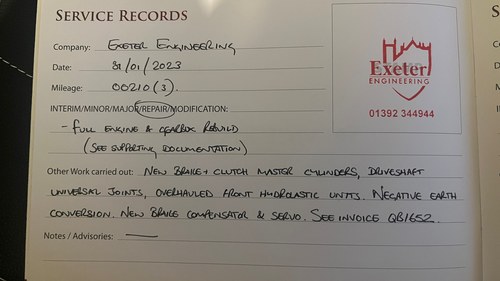 SERVICE RECORDS
Company: EXETER ENGINEERING
Date: 31/01/2023
Mileage: 00210(3).
INTERIM/MINOR/MAJOR/REPAIR/MODIFICATION:
- FULL ENGINE & GEARBOX REBUILD
(SEE SUPPORTING DOCUMENTATION)
Other Work carried out: NEW BRAKE + CLUTCH MASTER CYLINDERS, DRIVESHAFT
UNIVERSAL JOINTS, OVERHAULED FRONT HYDROLASTIC UNITS. NEGATIVE EARTH
CONVERSION. NEW BRAKE COMPENSATOR & SERVO. SEE INVOICE QB1652.
Notes / Advisories: —
Exeter
ENGINEERING
01392 344944